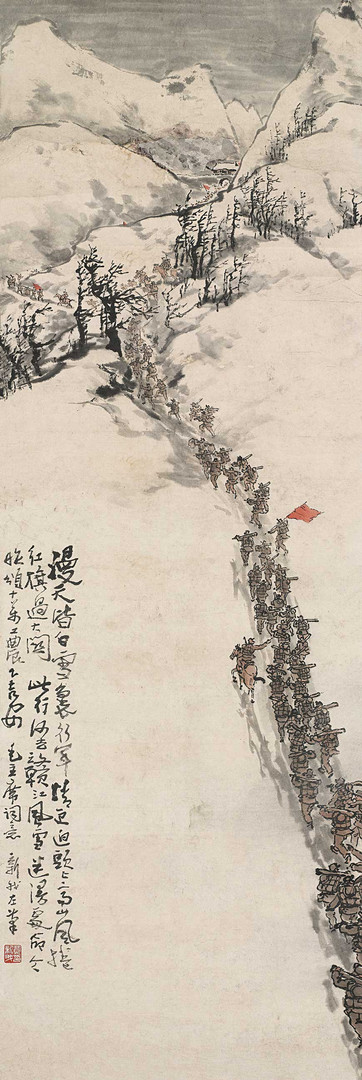 漫天皆白雪裏行軍情更迫頭上高山風捲
紅旗過大關 此行何去贛江風雪迷漫處命令
昨頒十萬工農下吉安 毛主席詞意 新我左筆